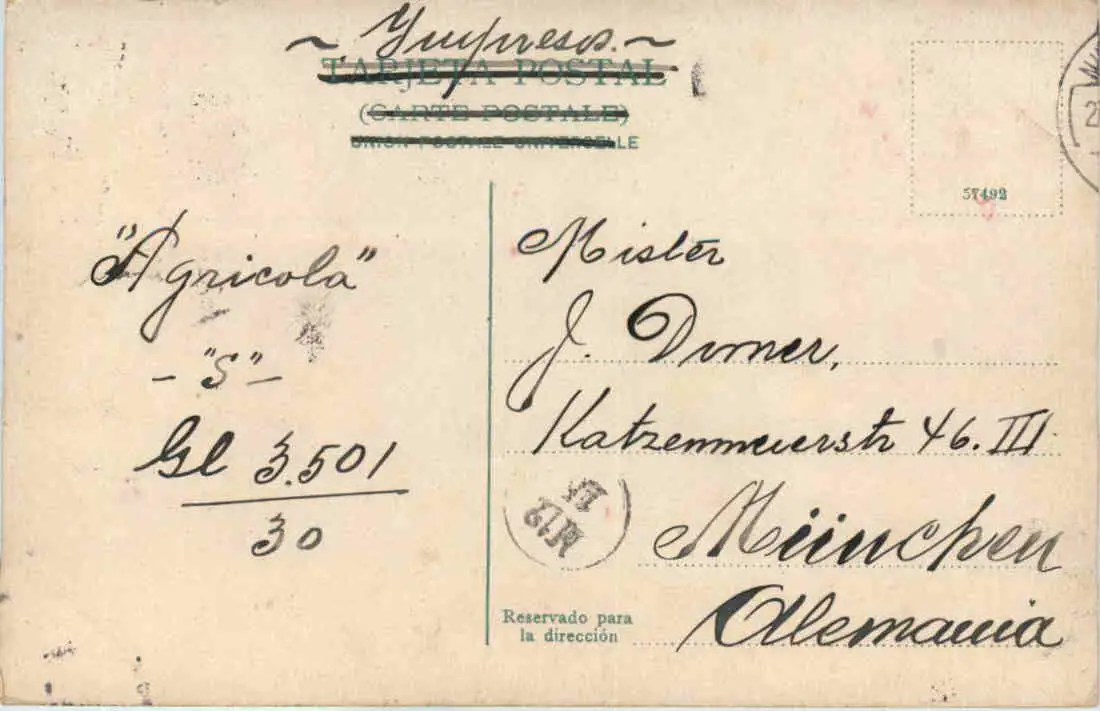 ~ Impresos. ~
TARJETA POSTAL
(CARTE POSTALE)
UNION POSTALE UNIVERSELLE
57492
"Agricola"
- "S" -
Gl 3.501
30
Mister
J. Dorner,
Katzenmeierstr 46. III
München
Alemania
Reservado para
la dirección